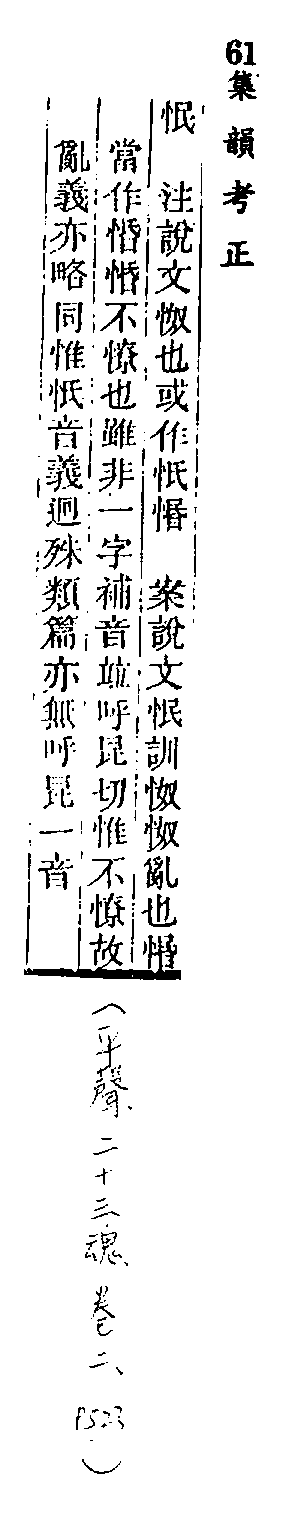 61
集韻考正
怋　注說文怓也或作怟惽　案說文怋訓怓怓亂也惽
當作惛惛不憭也雖非一字補音竝呼昆切惟不憭故
亂義亦略同惟怟音義迥殊類篇亦無呼昆一音
（平聲二十三魂、卷二、P523）